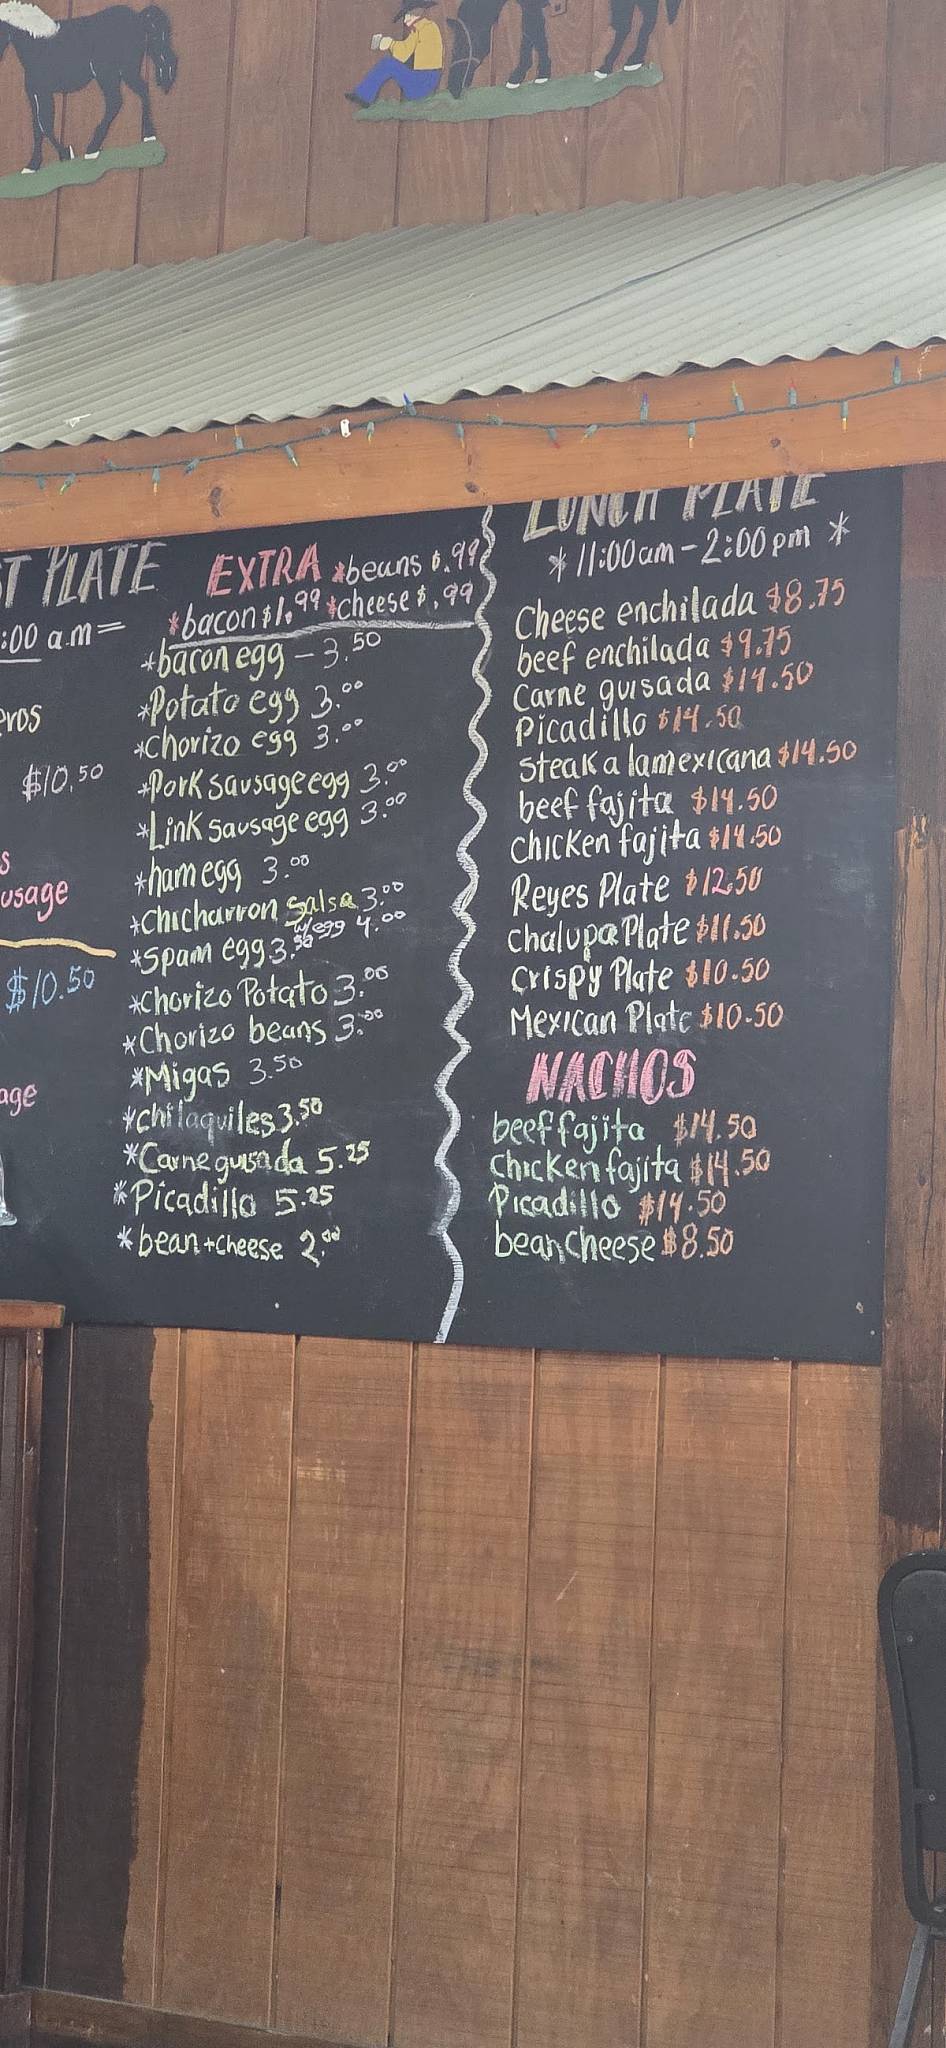 T PLATE
:00 a.m=
eros
$10.50
s
usage
$10.50
age
EXTRA *beans $.99
*bacon $1.99 *cheese $.99
*bacon egg - 3.50
*Potato egg 3.00
*Chorizo egg 3.00
*Pork sausage egg 3.00
*Link sausage egg 3.00
*ham egg 3.00
*chicharron salsa 3.00
w/egg 4.00
*spam egg 3.50
*Chorizo Potato 3.00
*Chorizo beans 3.00
*Migas 3.50
*chilaquiles 3.50
*Carne guisada 5.25
*Picadillo 5.25
*bean+cheese 2.00
LUNCH PLATE
*11:00am-2:00pm*
Cheese enchilada $8.75
beef enchilada $9.75
Carne guisada $14.50
Picadillo $14.50
Steak a lamexicana $14.50
beef fajita $14.50
chicken fajita $14.50
Reyes Plate $12.50
Chalupa Plate $11.50
Crispy Plate $10.50
Mexican Plate $10.50
NACHOS
beef fajita $14.50
Chicken fajita $14.50
Picadillo $14.50
bean cheese $8.50